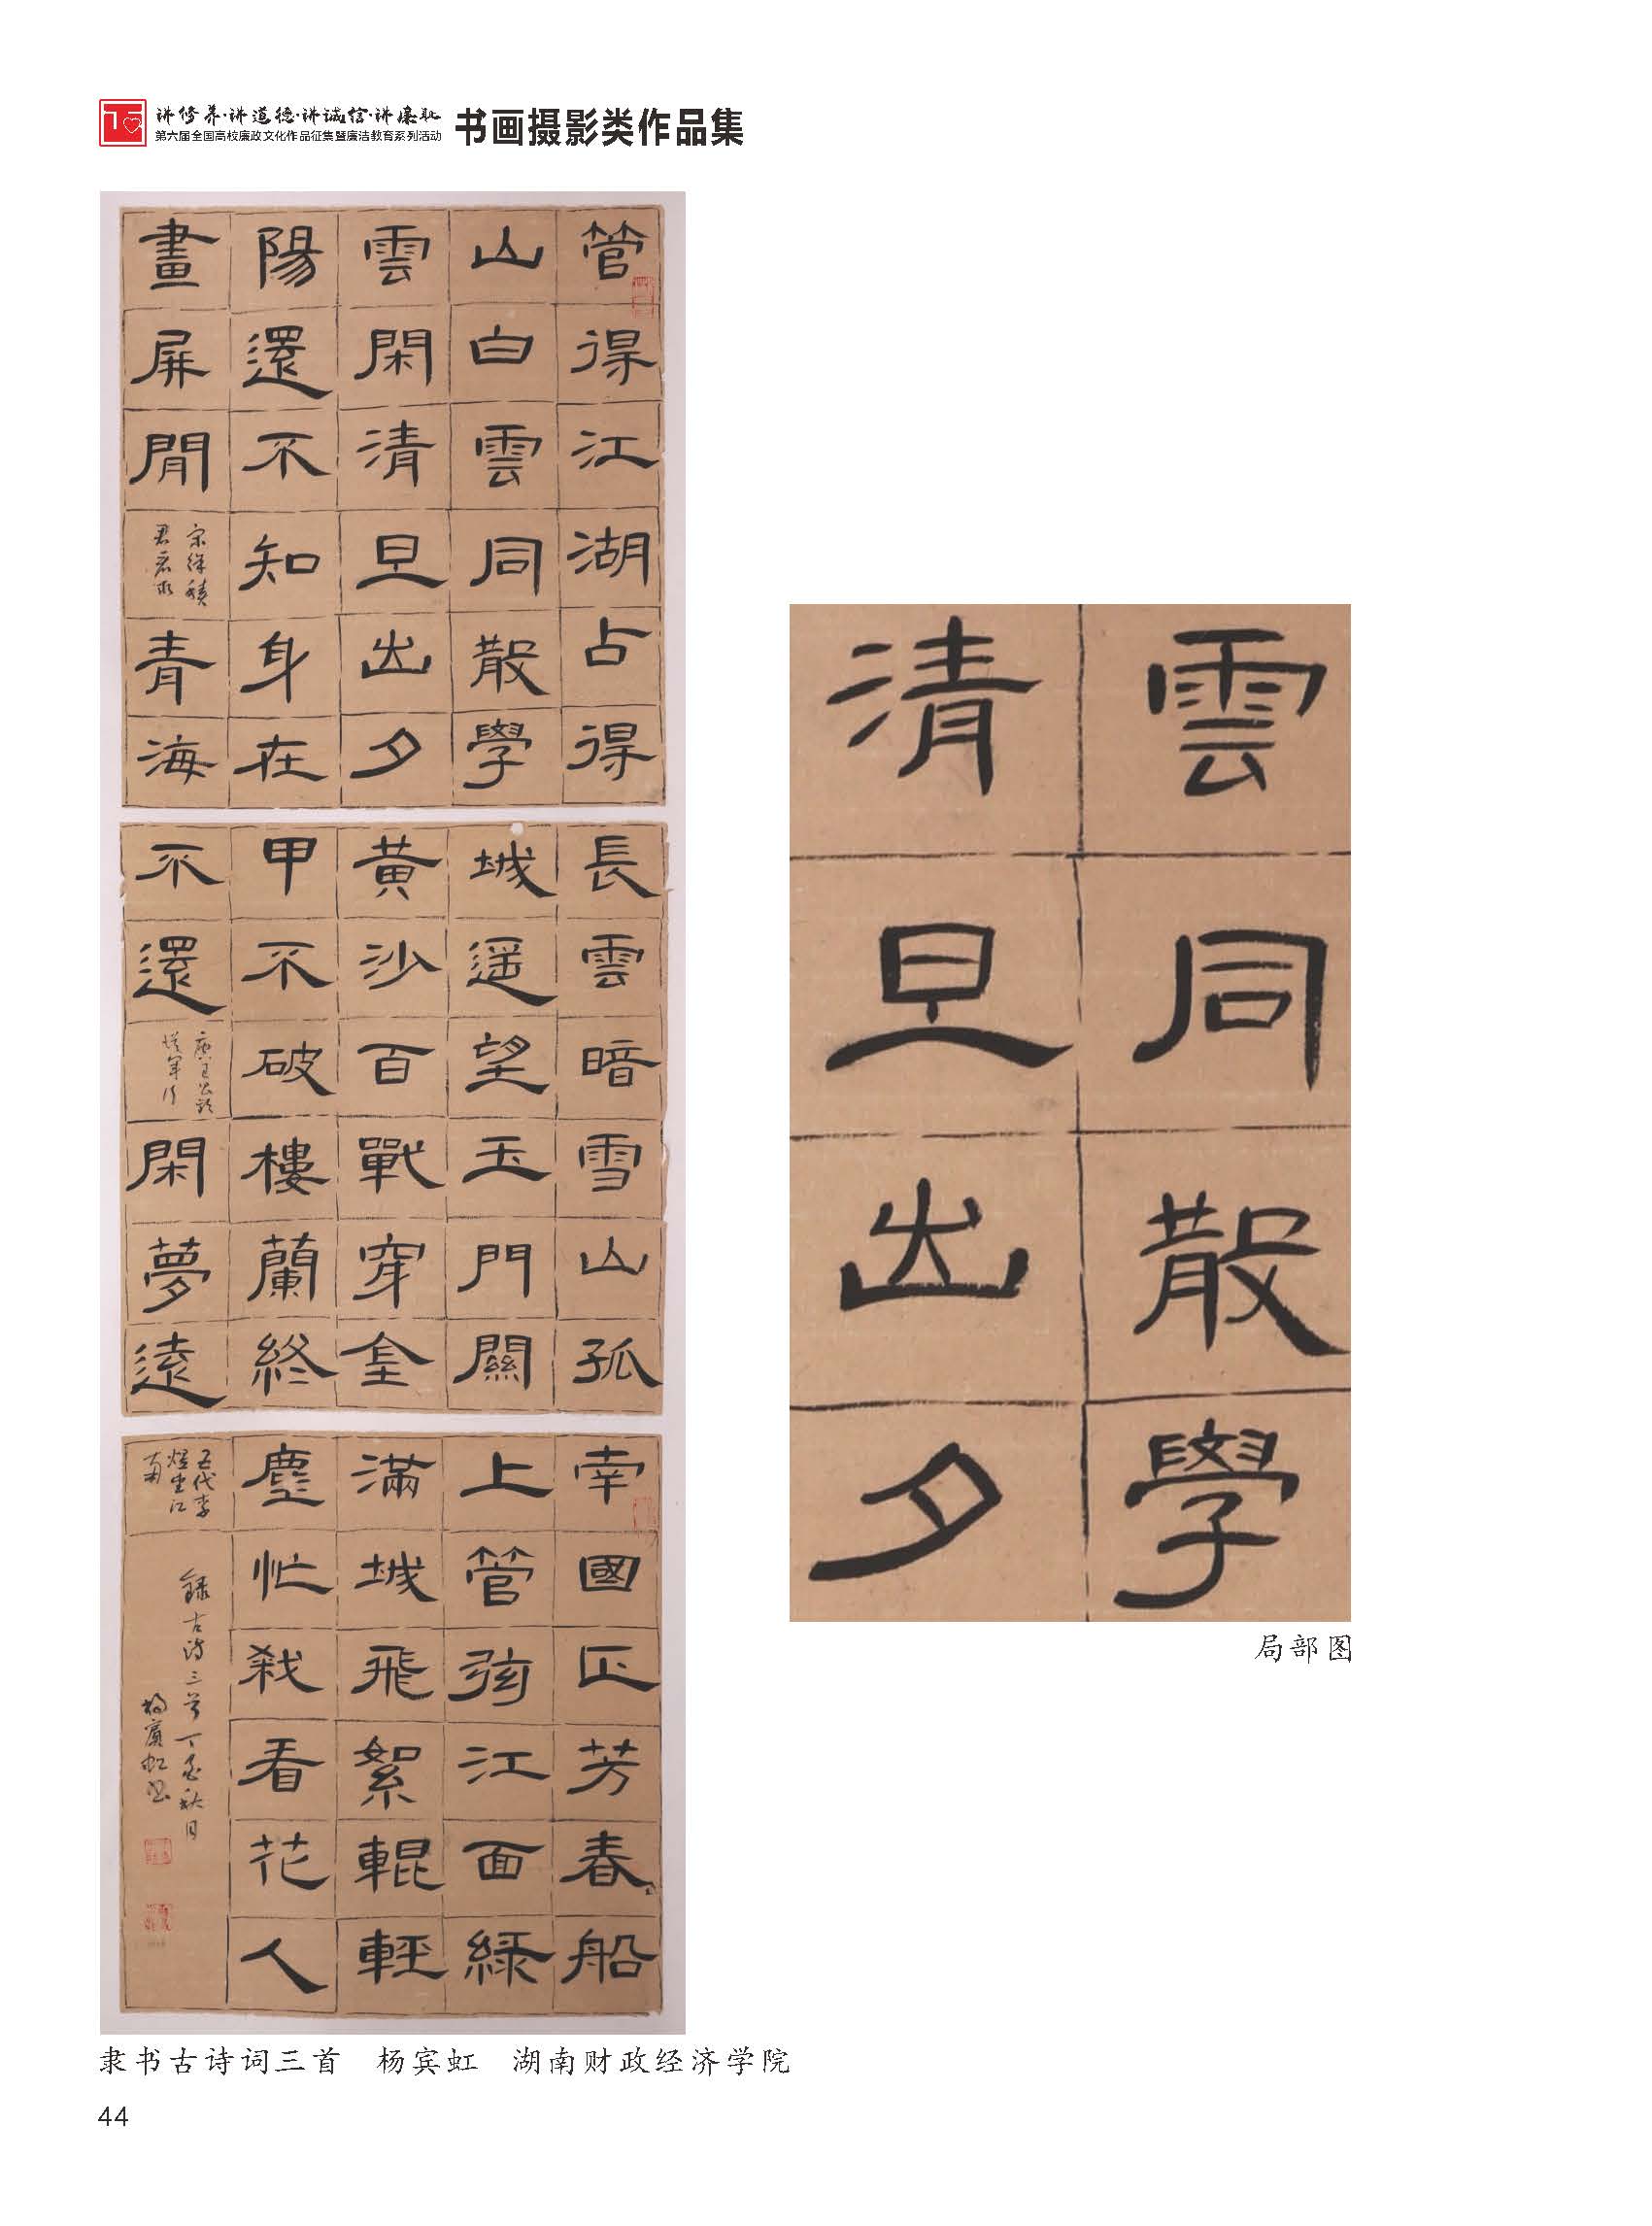 讲修养·讲道德·讲诚信·讲廉耻
第六届全国高校廉政文化作品征集暨廉洁教育系列活动
书画摄影类作品集
管得江湖占得
山白雲同散學
雲閑清旦出夕
陽還不知身在
畫屏間
宋徐積
君看取
青海
長雲暗雪山孤
城遥望玉門關
黄沙百戰穿金
甲不破樓蘭終
不還
唐王昌齡
從軍行
閑夢遠
南國正芳春船
上管弦江面緑
滿城飛絮輥輕
塵忙殺看花人
五代李
煜望江
南
録古詩三首丁酉秋月
楊賓虹書
雲同散學
清旦出夕
局部图
隶书古诗词三首 杨宾虹 湖南财政经济学院
44